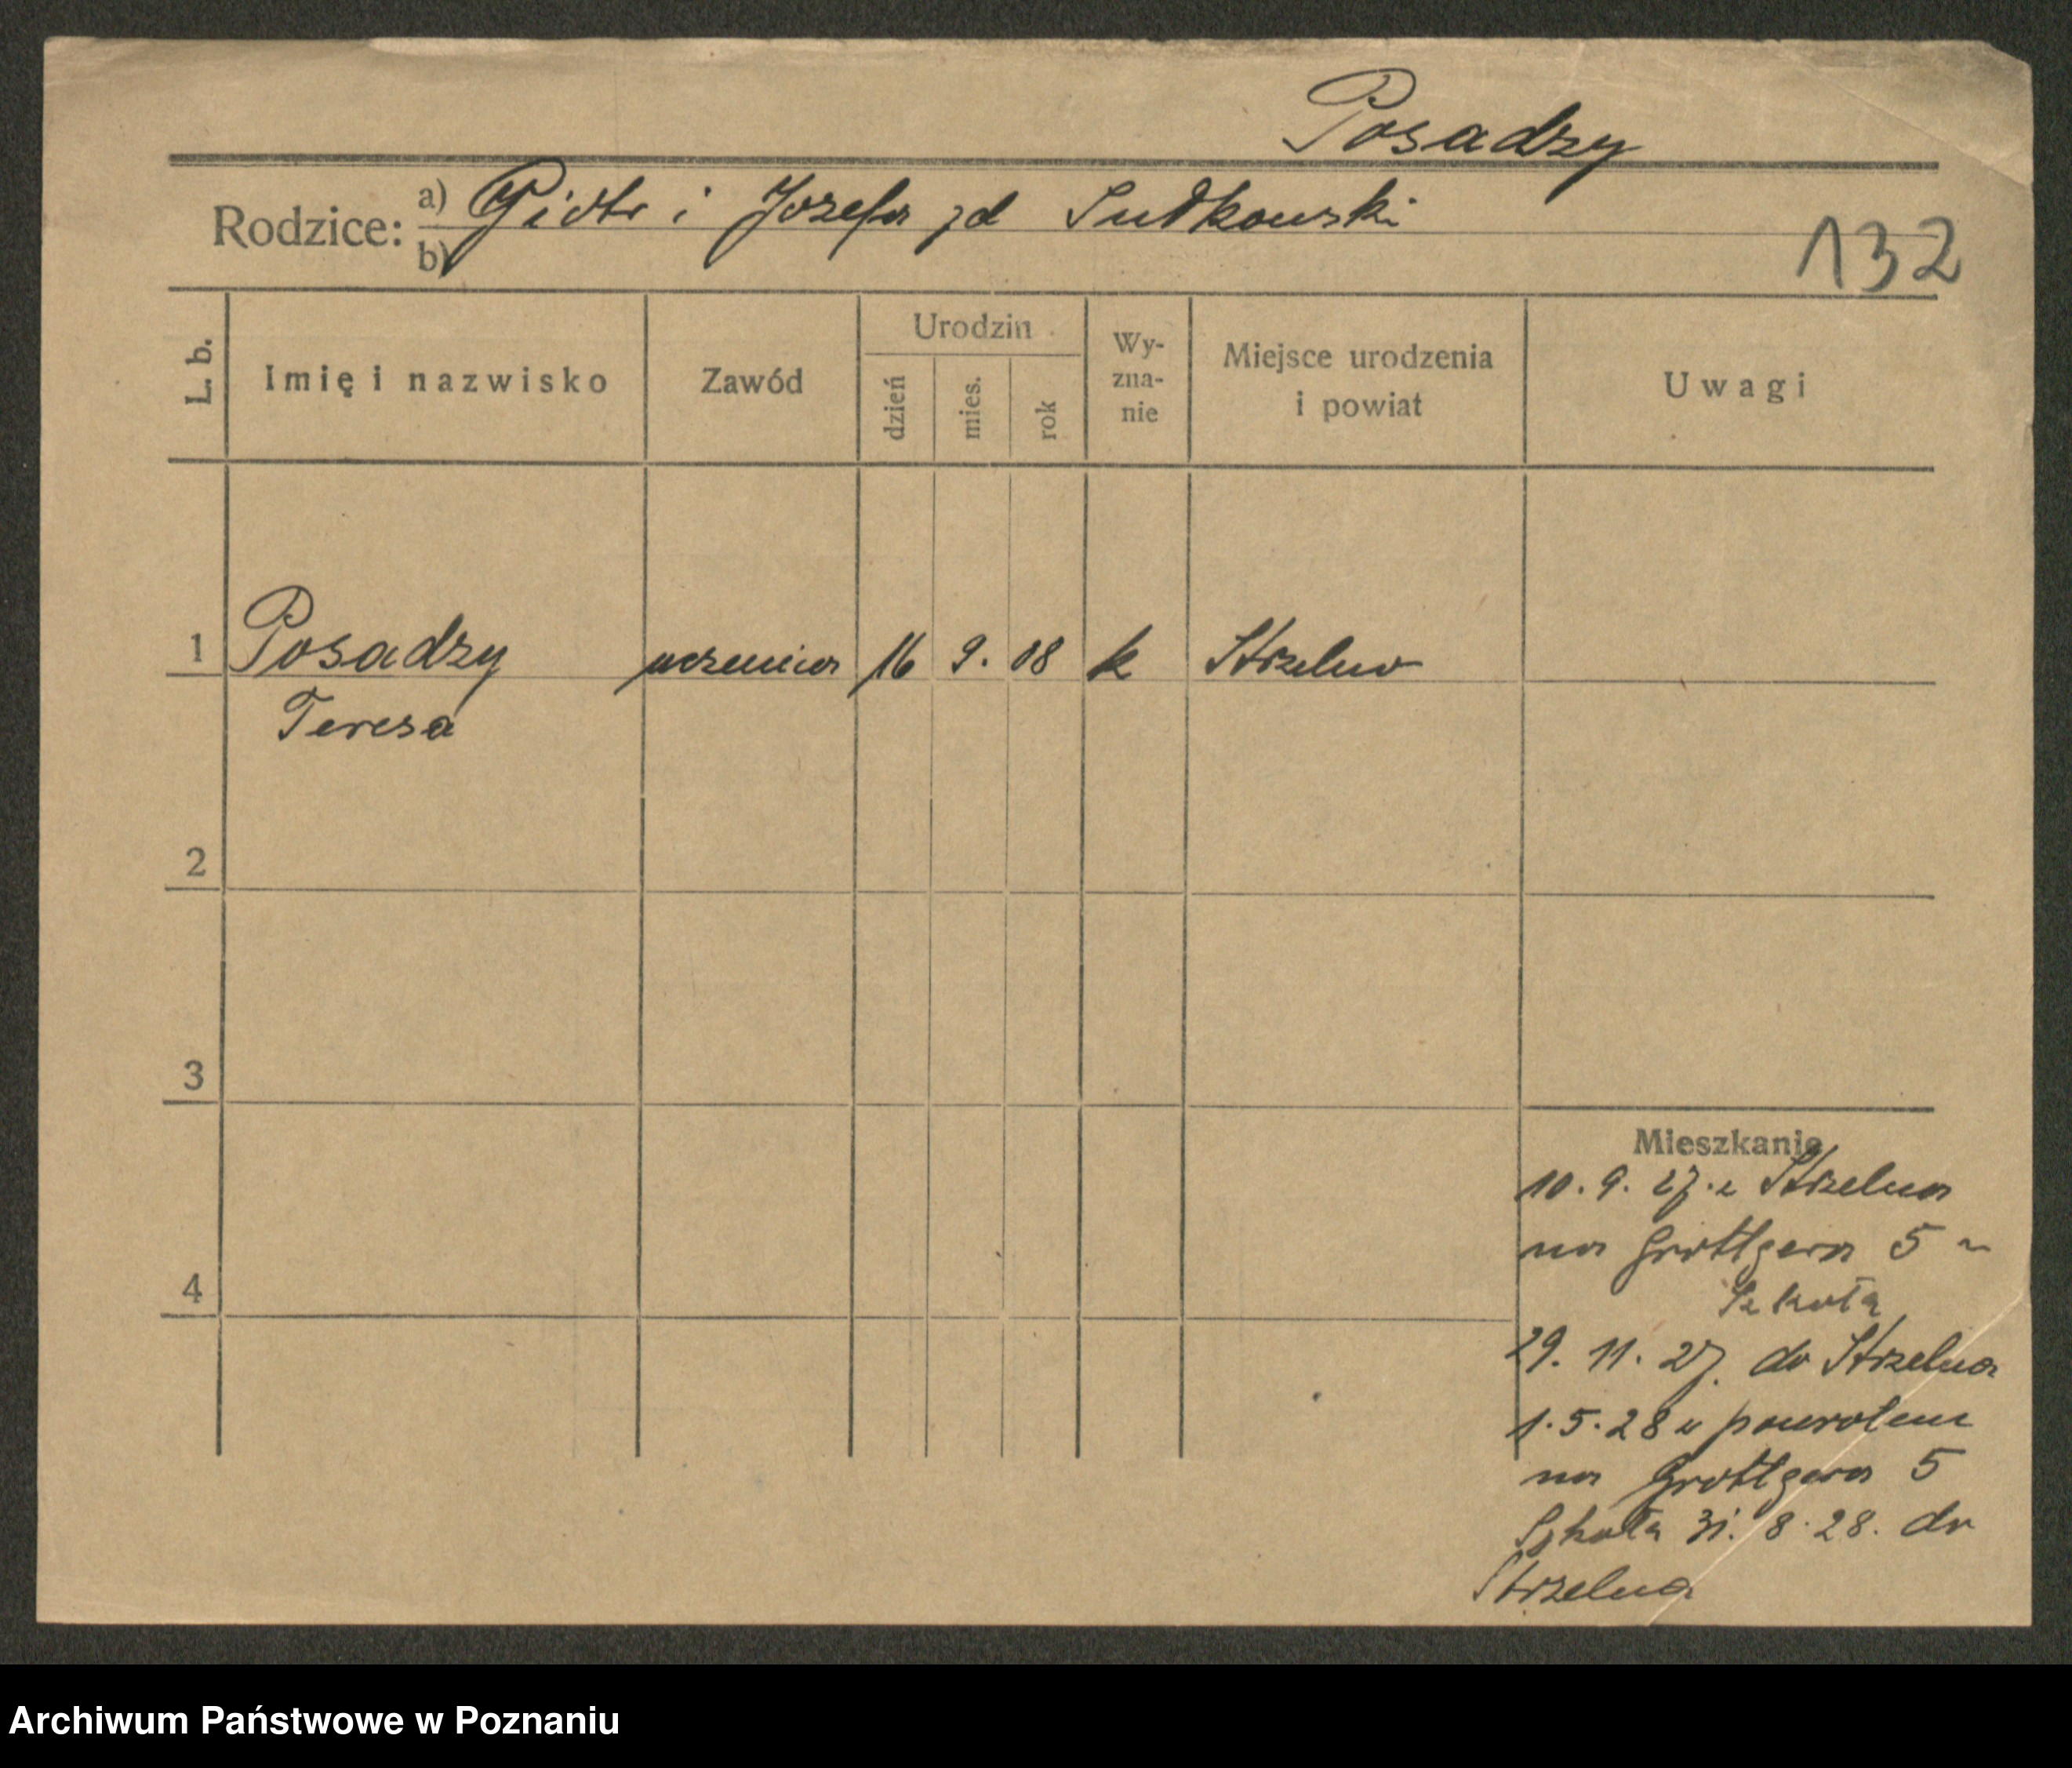 Posadzy
Rodzice: a) Piotr i Józefa zd Sutkowski
b)
132
L. b.
Imię i nazwisko
Zawód
Urodzin
dzień
mies.
rok
Wy-
zna-
nie
Miejsce urodzenia
i powiat
Uwagi
1 Posadzy uczenica 16 9. 08 k Strzelno
Teresa
2
3
4
Mieszkanie
10. 9. 27. z Strzelna
na Grottgera 5
Szkoła
29. 11. 27. do Strzelna
1. 5. 28 z powrotem
na Grottgera 5
Szkoła 31. 8. 28. do
Strzelna
Archiwum Państwowe w Poznaniu